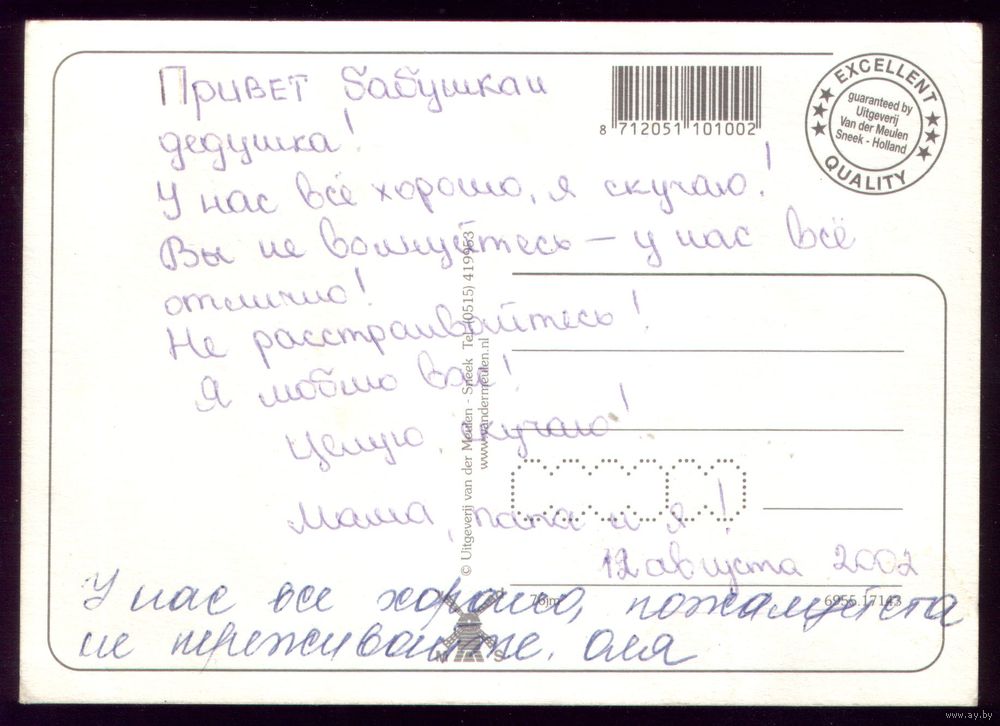 Привет бабушка и
дедушка!
У нас всё хорошо, я скучаю!
Вы не волнуйтесь – у нас всё
отлично!
Не расстраивайтесь!
Я люблю вас!
Целую, скучаю!
Мама, папа и я!
12 августа 2002
У нас все хорошо, пожалуйста
не переживайте. Оля
8 712051 101002
EXCELLENT
guaranteed by
Uitgeverij
Van der Meulen
Sneek - Holland
QUALITY
© Uitgeverij van der Meulen - Sneek Tel. (0515) 419953
www.vandermeulen.nl
76jm
6955.17143
M S
www.ay.by